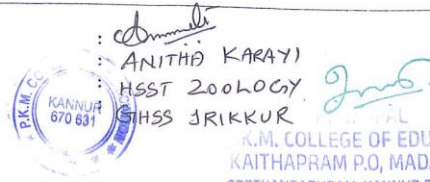 :
: ANITHA KARAYI
: HSST ZOOLOGY
: GHSS IRIKKUR
P.K.M. CO
KANNUR
670 631
PAL
K.M. COLLEGE OF EDU
KAITHAPRAM P.O, MAD